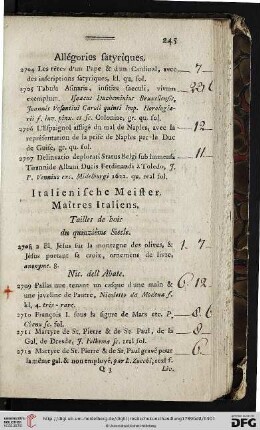 245
Allégories satyriques.
2704 Les têtes d'un Pape & d'un Cardinal, avec
des inscriptions satyriques, kl. qu. fol. 7
2705 Tabula Asinaria, insitiæ saeculi, vivum
exemplum.
Joannis Vesantini Caroli quinti Imp. Horologia-
rii f. inv. pinx. et sc. Coloniae, gr. qu. fol.
2706 L'Espagnol affligé du mal de Naples, avec la 12
représentation de la prise de Naples par le Duc
de Guise, gr. qu. fol.
2707 Delineatio deplorati Status Belgi sub immensa 11
Tirannide Albani Ducis Ferdinandi a Toledo, J.
P. Vennius exc. Midelburgi 1622. qu. real fol.
Italienische Meister.
Maîtres Italiens,
Tailles de bois
du quinzième Siècle.
2708 a Bl. Jésus sur la montagne des olives, & 1. 7
Jésus portant sa croix, ornemens de livre,
anonyme. 8.
Nic. dell Abate.
2709 Pallas nue tenant un casque d'une main & 6 12
une javeline de l'autre, Nicoletto da Modena f.
kl. 4. très-rare.
2710 François I. sous la figure de Mars etc. P. 8 6
Chenu sc. fol.
2711 Martyre de St. Pierre & de St. Paul, de la 8
Gal. de Dresde, J. Folkema sc. real fol.
2712 Martyre de St. Pierre & de St. Paul gravé pour 6
la même gal. & non employé, par L. Zucchi, real f.
Q 3
Liv.
DFG